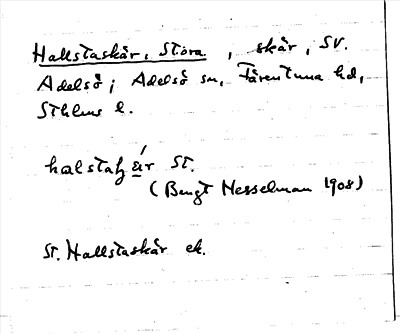 Hallstaskär, Stora, skär, SV.
Adelsö; Adelsö sn, Färentuna hd,
Sthlms l.
halstaʃɛ́r St.
(Bengt Hesselman 1908)
St. Hallstaskär ek.